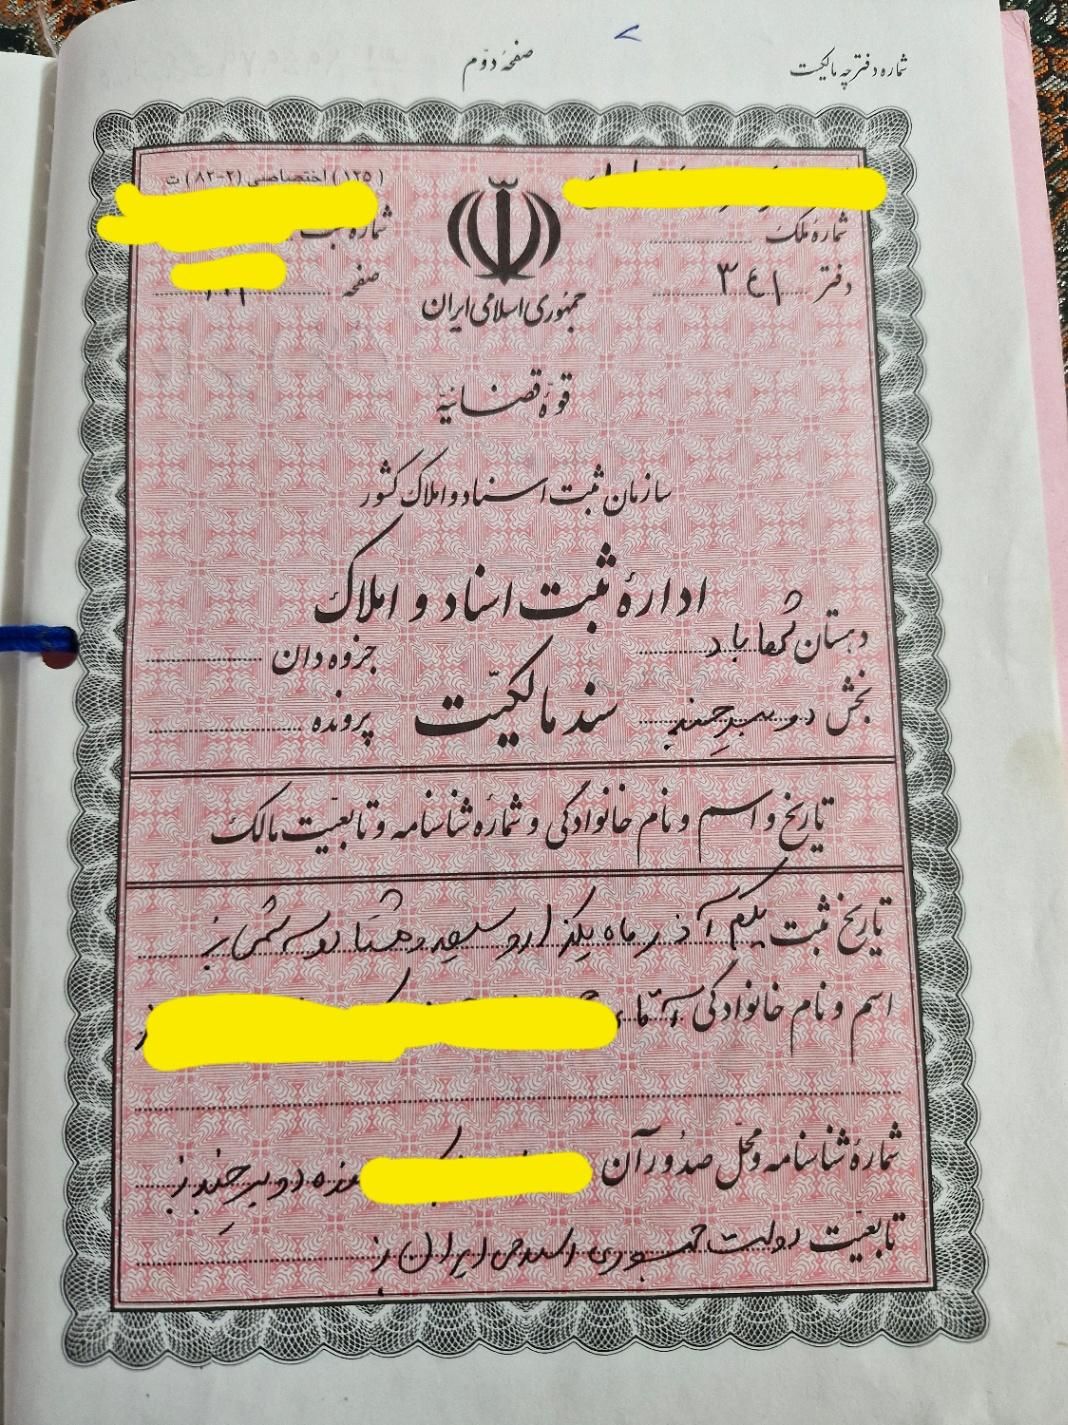 شماره دفترچه مالکیت
صفحهٔ دوّم
(۱۲۵) اختصاصی (۲-۸۲) ت
شمارهٔ ملک
شماره ثبت
دفتر ۳٤۱
صفحه
جمهوری اسلامی ایران
قوّهٔ قضائیّه
سازمان ثبت اسناد و املاک کشور
ادارهٔ ثبت اسناد و املاک
دهستان باد
جزوه دان
بخش دو بیرجند
سند مالکیّت
پرونده
تاریخ و اسم و نام خانوادگی و شمارهٔ شناسنامه و تابعیّت مالک
تاریخ ثبت یکم آذر ماه یکهزار و سیصد و هشتاد و سه شمسی
اسم و نام خانوادگی آقای
شمارهٔ شناسنامه و محلّ صدور آن دو بیرجند
تابعیّت دولت جمهوری اسلامی ایران